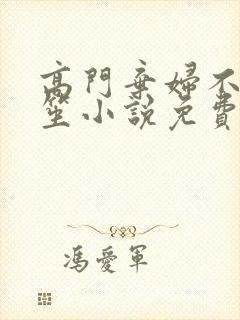 高門棄婦不
笙小說免費
馮愛軍